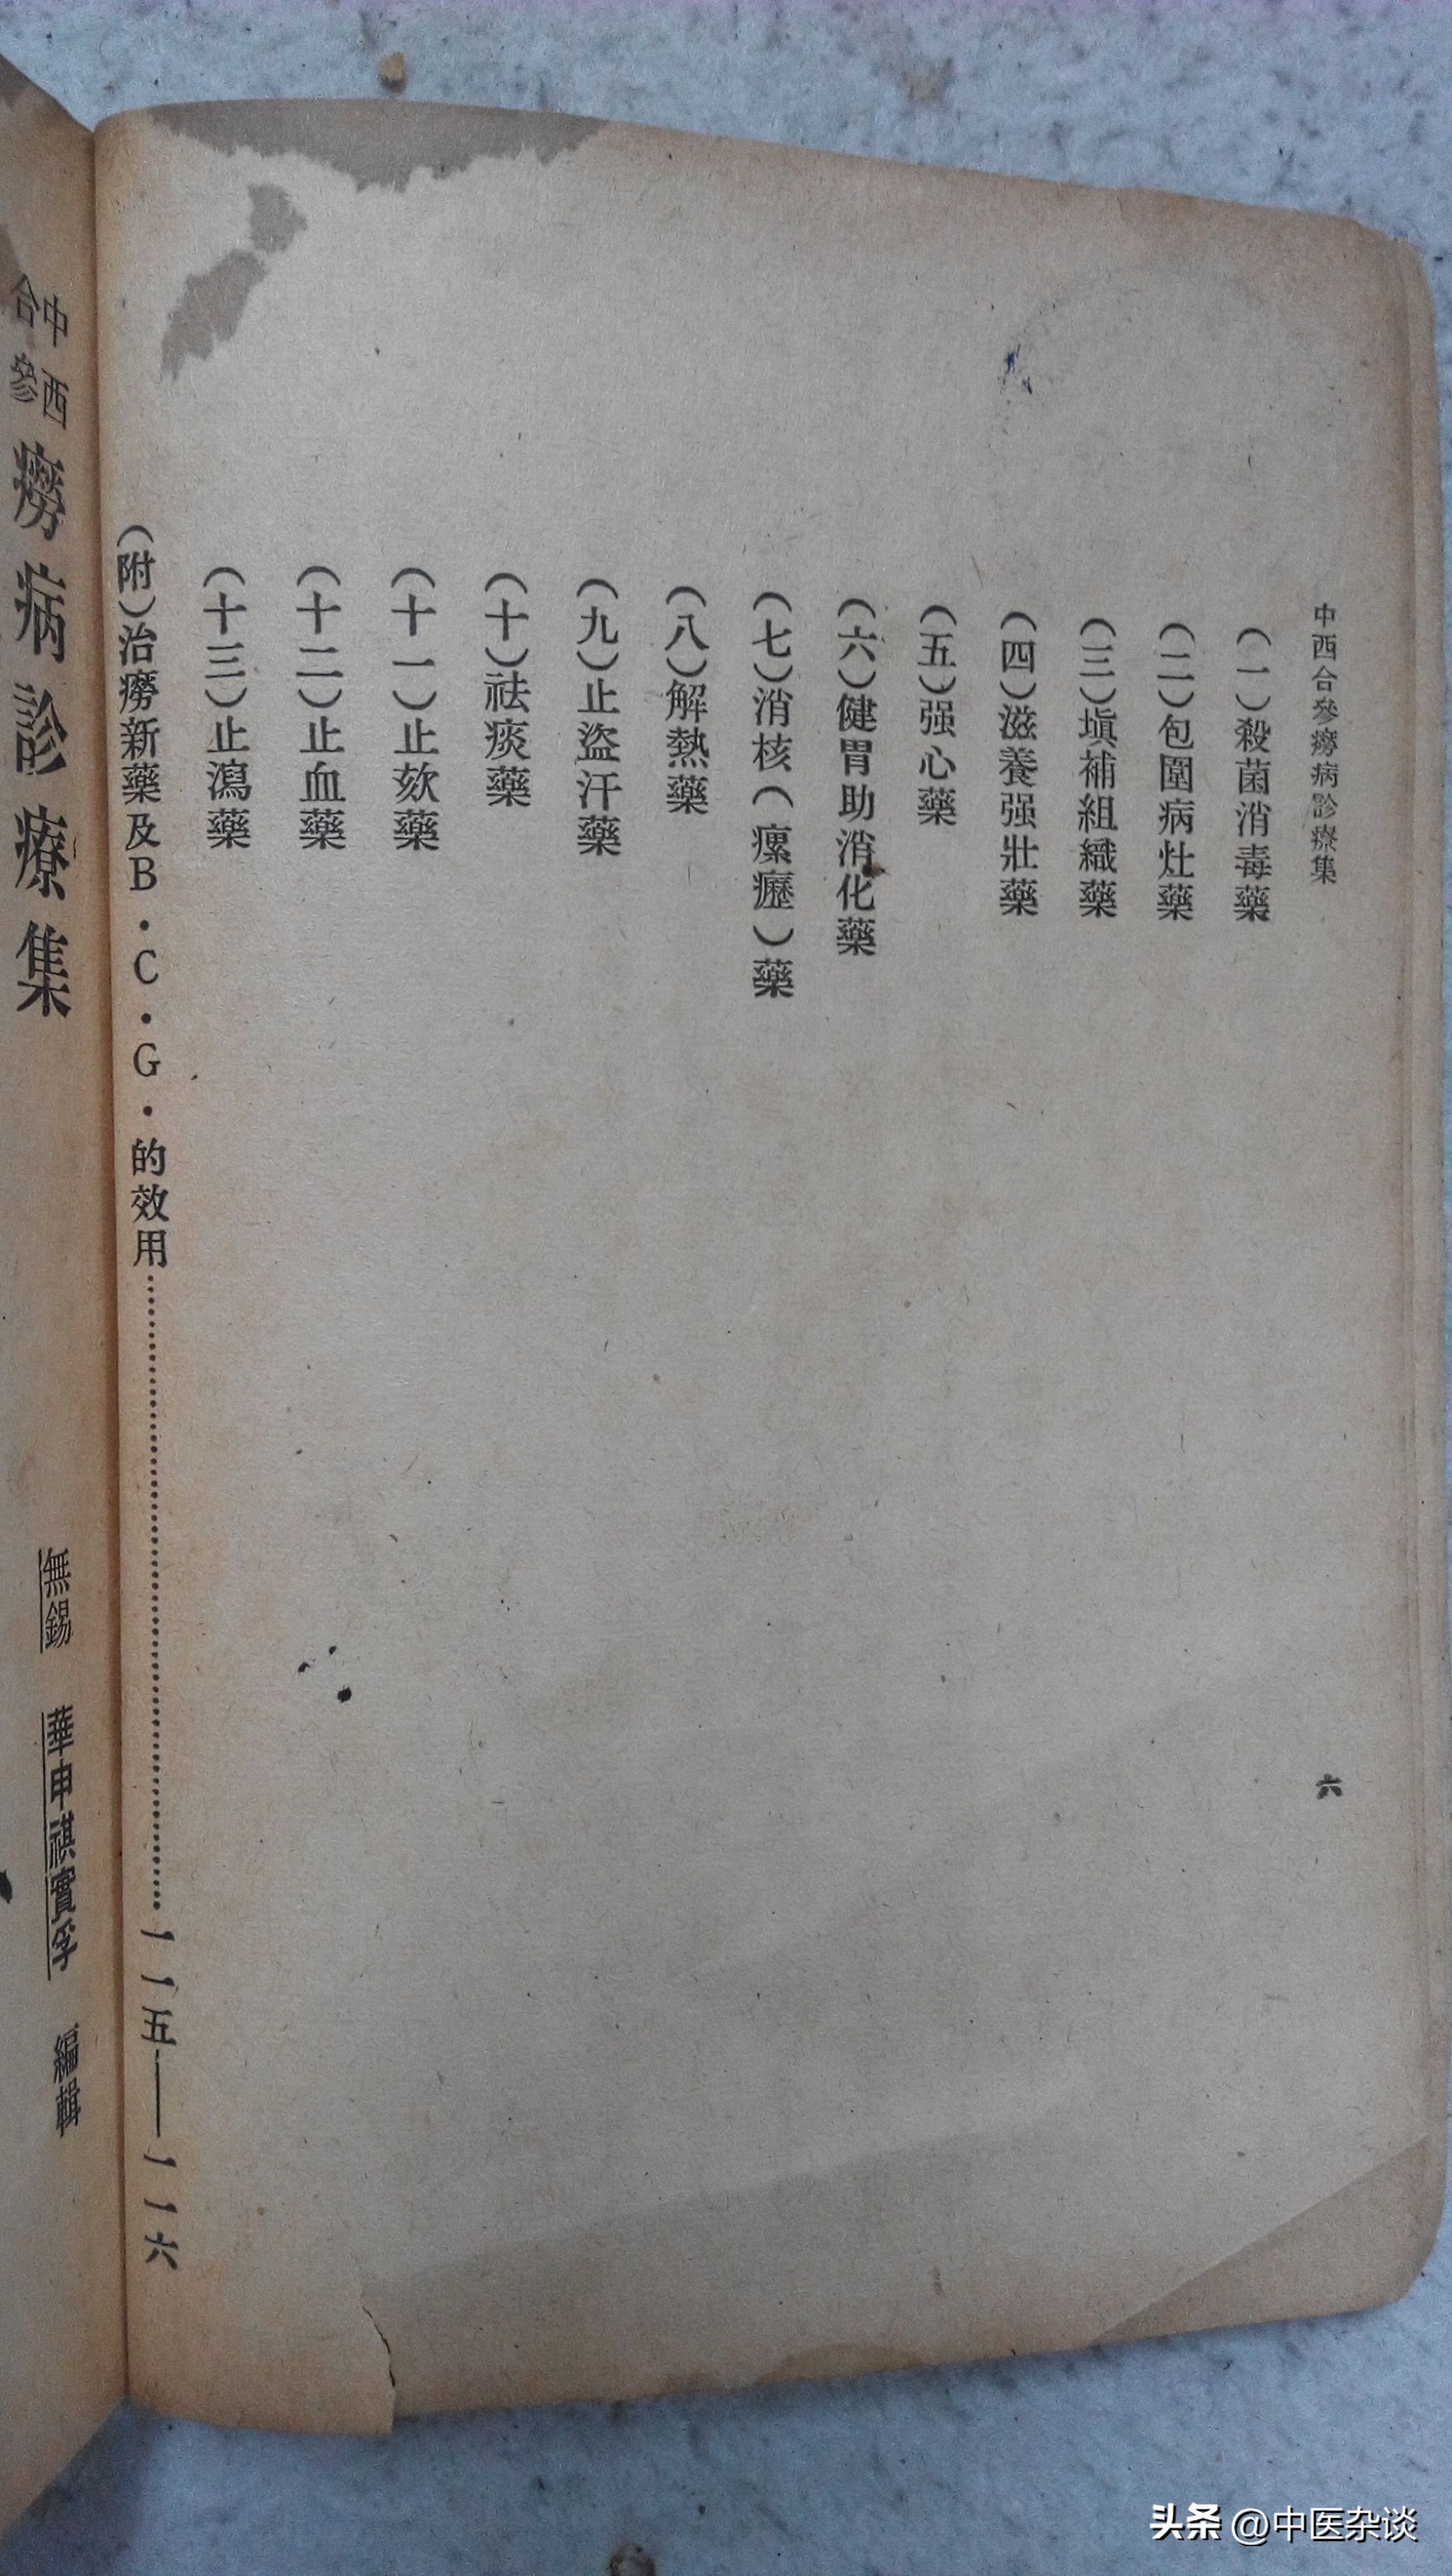 中西合參癆病診療集
六
（一）殺菌消毒藥
（二）包圍病灶藥
（三）塡補組織藥
（四）滋養强壯藥
（五）强心藥
（六）健胃助消化藥
（七）消核（瘰癧）藥
（八）解熱藥
（九）止盜汗藥
（十）祛痰藥
（十一）止欬藥
（十二）止血藥
（十三）止瀉藥
（附）治癆新藥及B．C．G．的效用……一一五——一一六
中西
合參
癆病診療集
無錫 華申祺實孚 編輯
头条 @中医杂谈